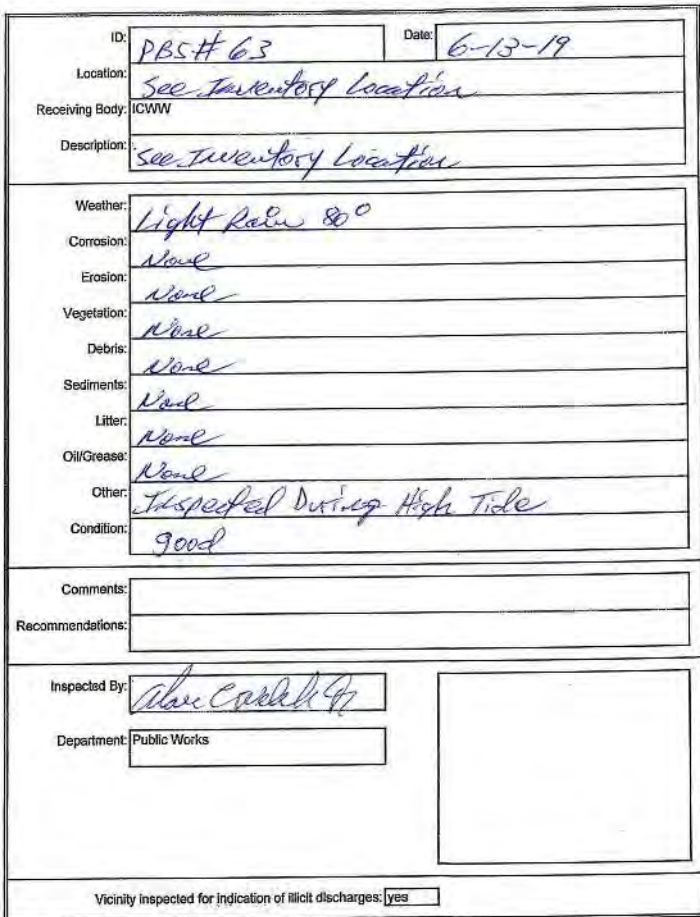 ID: PBS# 63 Date: 6-13-19
Location: See Inventory Location
Receiving Body: ICWW
Description: See Inventory Location
Weather: Light Rain 80°
Corrosion: None
Erosion: None
Vegetation: None
Debris: None
Sediments: None
Litter: None
Oil/Grease: None
Other: Inspected During High Tide
Condition: good
Comments:
Recommendations:
Inspected By:
Department: Public Works
Vicinity inspected for indication of illicit discharges: yes